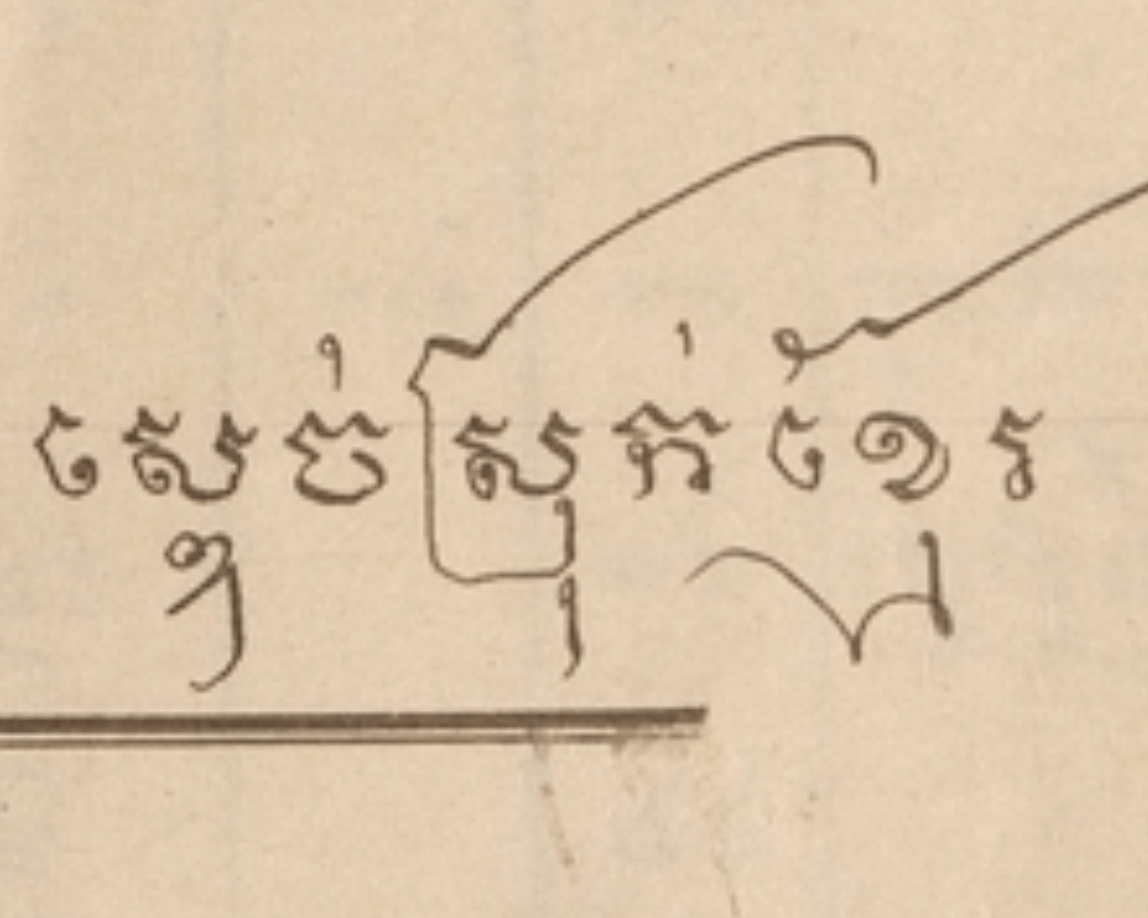 ស្តេច់ស្រុក់ខ្មែរ